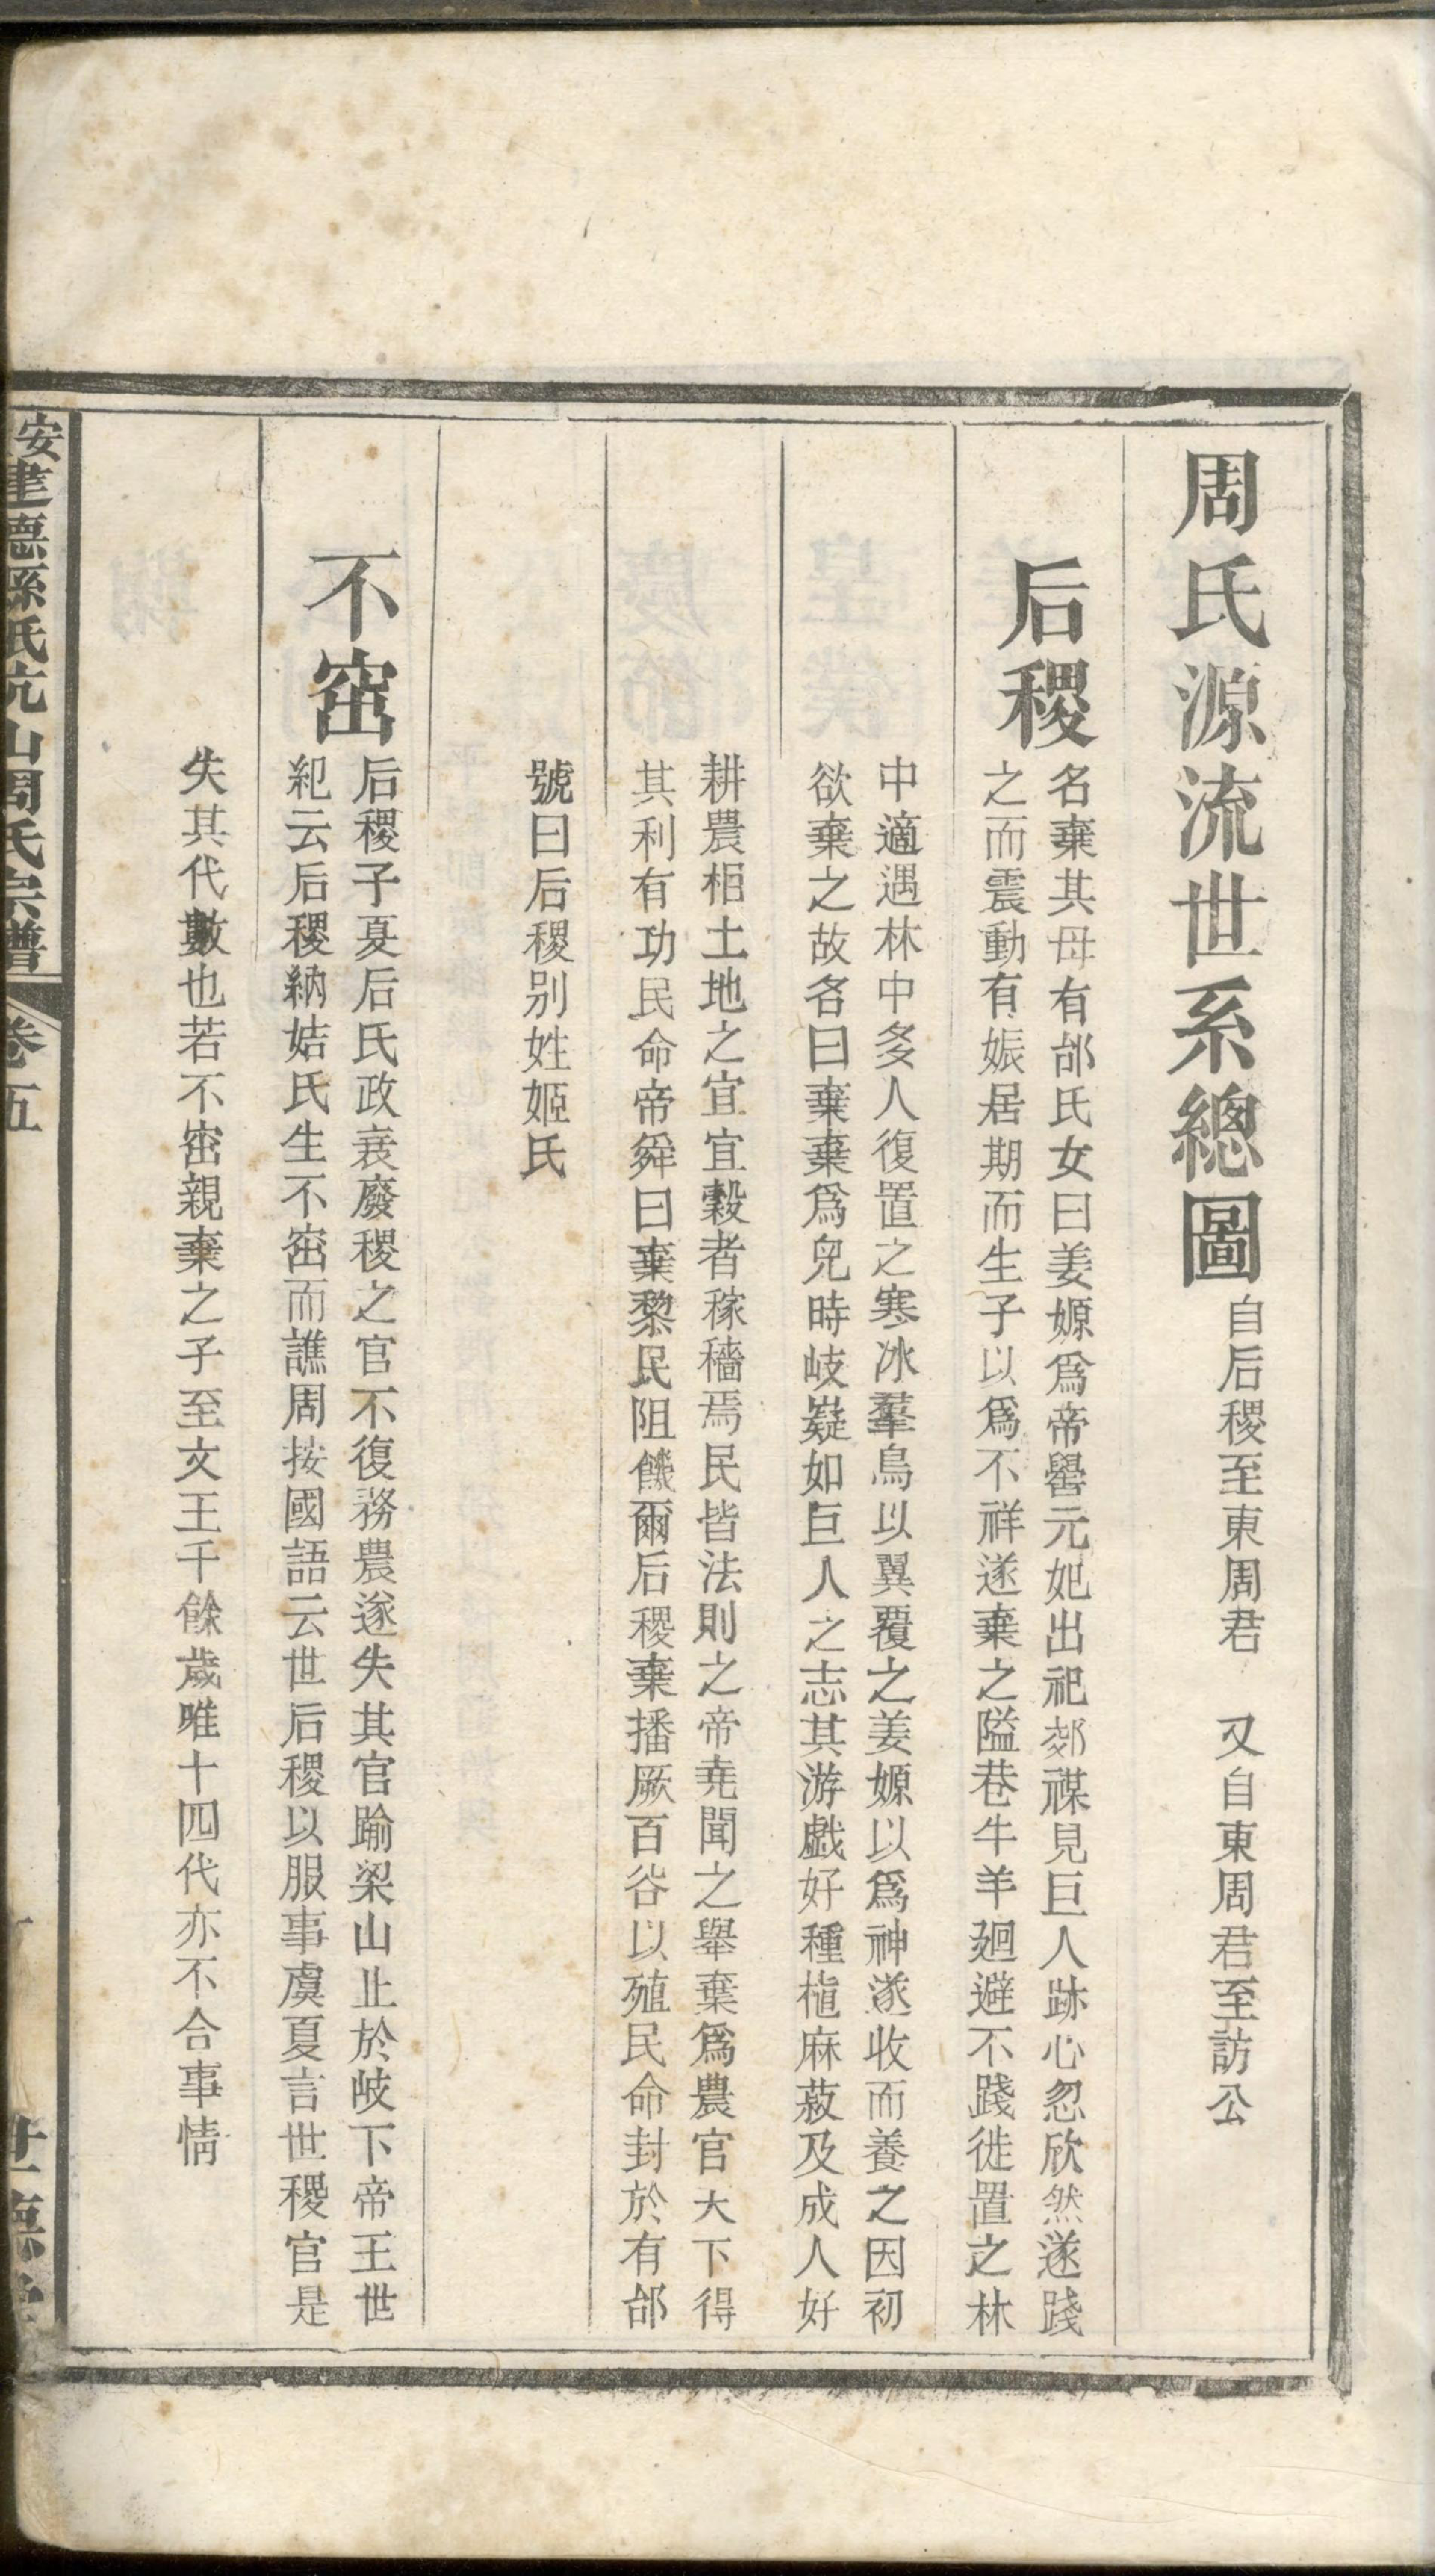 周氏源流世系總圖
自后稷至東周君　又自東周君至訪公
后稷
名棄其母有邰氏女曰姜嫄爲帝嚳元妃出祀郊禖見巨人跡心忽欣然遂踐
之而震動有娠居期而生子以爲不祥遂棄之隘巷牛羊廻避不踐徙置之林
中適遇林中多人復置之寒冰羣鳥以翼覆之姜嫄以爲神遂收而養之因初
欲棄之故名曰棄棄爲兒時岐嶷如巨人之志其游戲好種植麻菽及成人好
耕農相土地之宜宜穀者稼穡焉民皆法則之帝堯聞之舉棄爲農官大下得
其利有功民命帝舜曰棄黎民阻饑爾后稷棄播厥百谷以殖民命封於有邰
號曰后稷别姓姬氏
不窋
后稷子夏后氏政衰廢稷之官不復務農遂失其官踰梁山止於岐下帝王世
紀云后稷納姞氏生不窋而譙周按國語云世后稷以服事虞夏言世稷官是
失其代數也若不窋親棄之子至文王千餘歲唯十四代亦不合事情
安建德縣氏坑山周氏宗譜
卷五
世德堂